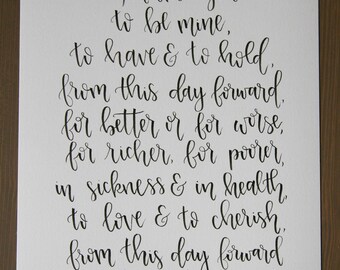 to be mine,
to have & to hold,
from this day forward,
for better or for worse,
for richer, for poorer,
in sickness & in health,
to love & to cherish,
from this day forward